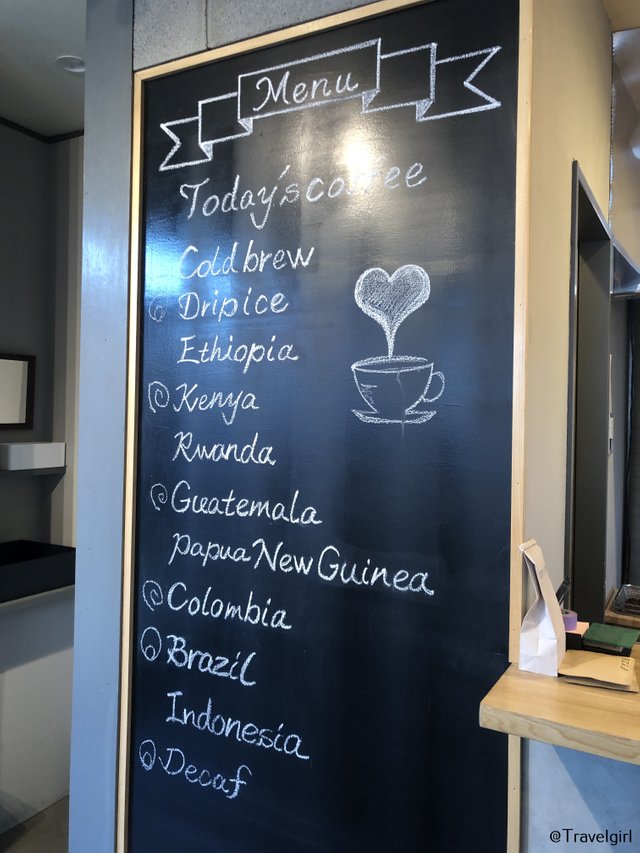 Menu
Today's coffee
Cold brew
Dripice
Ethiopia
Kenya
Rwanda
Guatemala
Papua New Guinea
Colombia
Brazil
Indonesia
Decaf
@Travelgirl